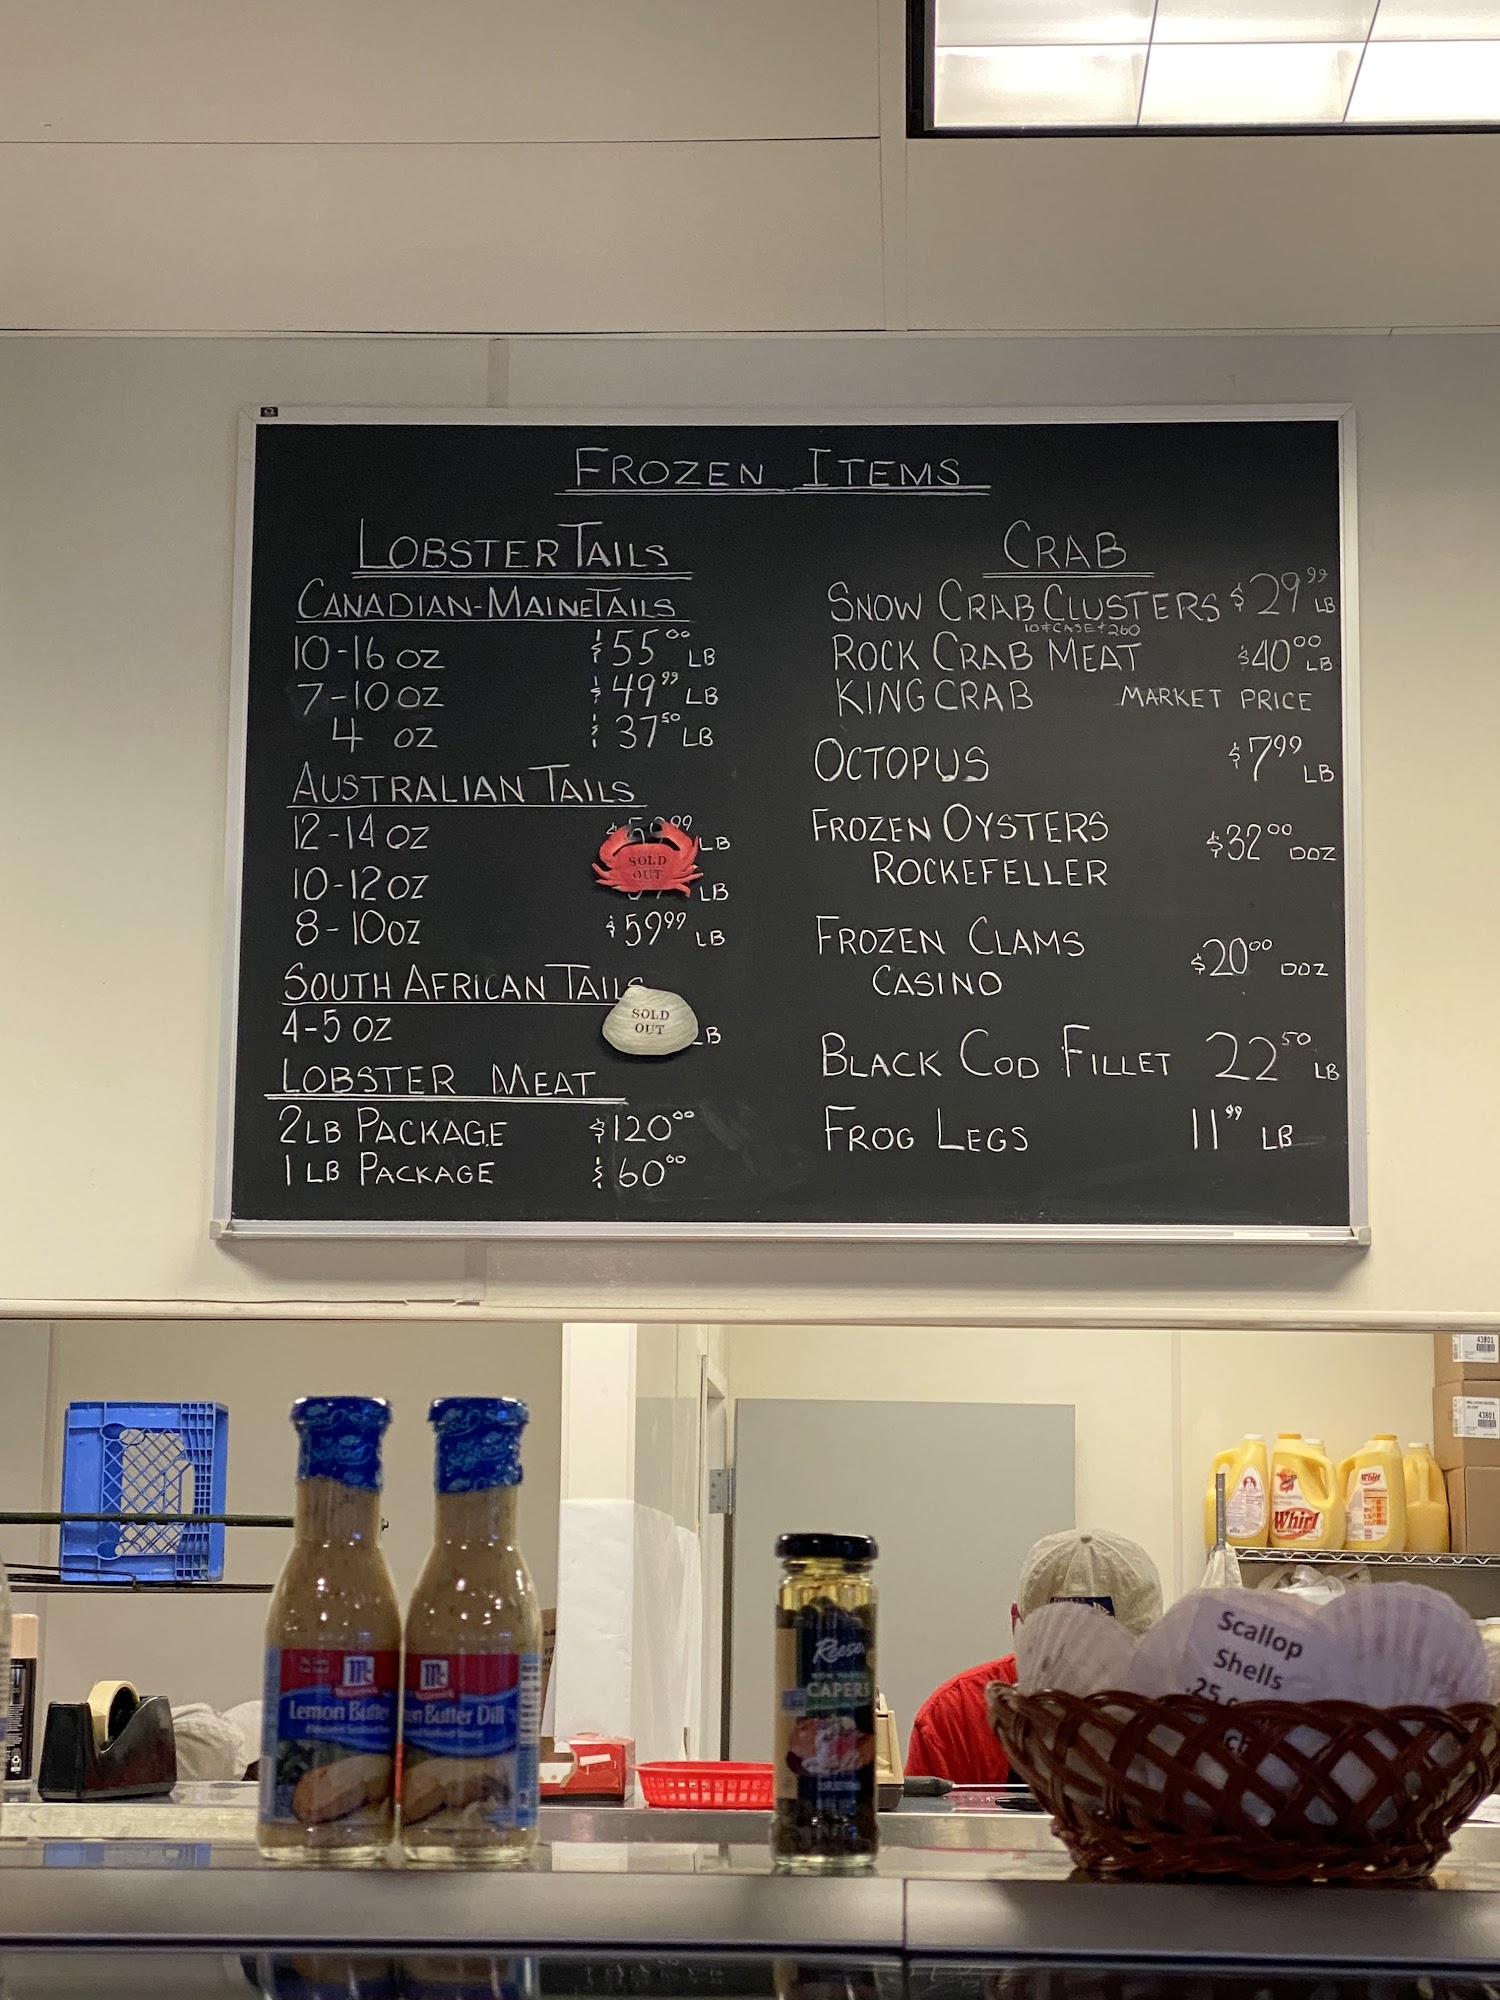 FROZEN ITEMS
LOBSTER TAILS
CANADIAN-MAINE TAILS
10-16 OZ $55.00 LB
7-10 OZ $49.99 LB
4 OZ $37.50 LB
AUSTRALIAN TAILS
12-14 OZ LB
SOLD
OUT
10-12 OZ LB
8-10 OZ $59.99 LB
SOUTH AFRICAN TAILS
4-5 OZ LB
SOLD
OUT
LOBSTER MEAT
2 LB PACKAGE $120.00
1 LB PACKAGE $60.00
CRAB
SNOW CRAB CLUSTERS $29.99 LB
10# CASE $260
ROCK CRAB MEAT $40.00 LB
KING CRAB MARKET PRICE
OCTOPUS $7.99 LB
FROZEN OYSTERS
ROCKEFELLER $32.00 DOZ
FROZEN CLAMS
CASINO $20.00 DOZ
BLACK COD FILLET 22.50 LB
FROG LEGS 11.99 LB
43801
43801
Whirl
Whirl
Mc
Lemon Butter
Mc
Butter Dill
Reese
CAPERS
Scallop
Shells
.25